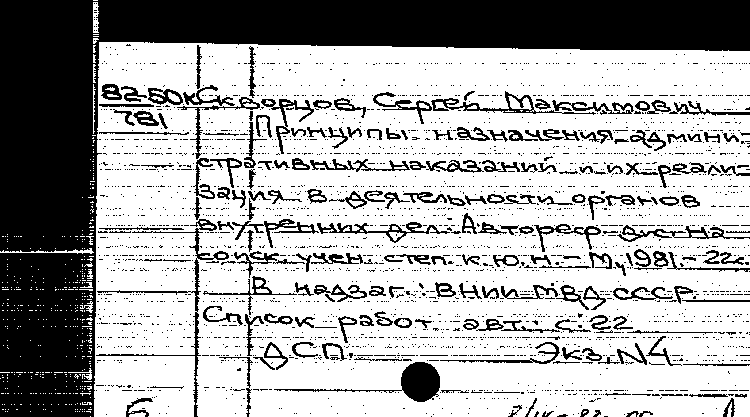 82-50к Скворцов, Сергей Максимович.
781
Принципы назначения админи-
стративных наказаний и их реали-
зация в деятельности органов
внутренних дел: Автореф. дис. на
соиск. учен. степ. к.ю.н. - М., 1981. - 22с.
В надзаг.: ВНИИ МВД СССР.
Список работ авт.: с. 22
ДСП. Экз. N4